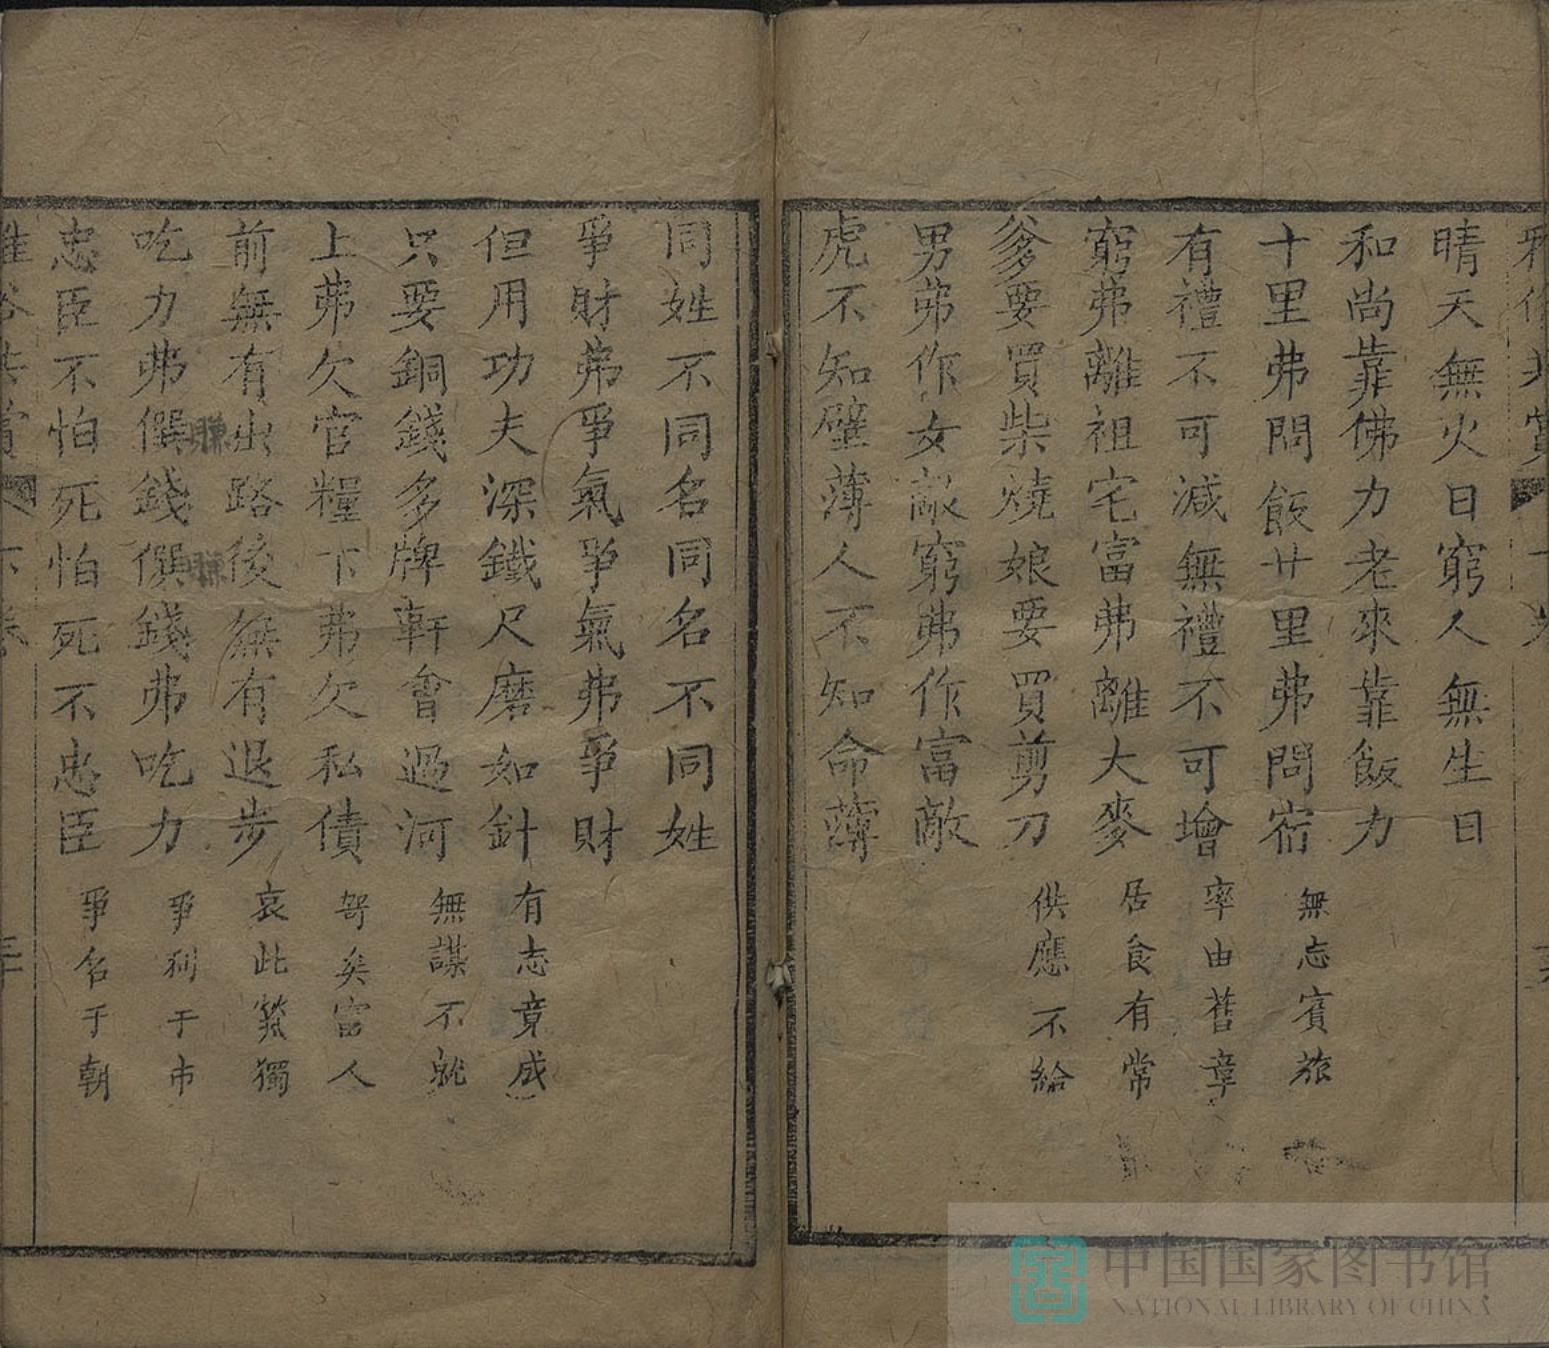 雅俗共賞 下卷
晴天無火日窮人無生日
和尚靠佛力老來靠飯力
十里弗問飯廿里弗問宿 無忘賓旅
有禮不可減無禮不可增 率由舊章
窮弗離祖宅富弗離大麥 居食有常
爹要買柴燒娘要買剪刀 供應不給
男弗作女敵窮弗作富敵
虎不知壁薄人不知命薄
同姓不同名同名不同姓
爭財弗爭氣爭氣弗爭財
但用功夫深鐵尺磨如針 有志竟成
只要銅錢多牌軒會過河 無謀不就
上弗欠官糧下弗欠私債 哿矣富人
前無有出路後無有退步 哀此煢獨
吃力弗僎錢僎錢弗吃力 爭利于市
忠臣不怕死怕死不忠臣 爭名于朝
雅俗共賞 下卷
中国国家图书馆
NATIONAL LIBRARY OF CHINA